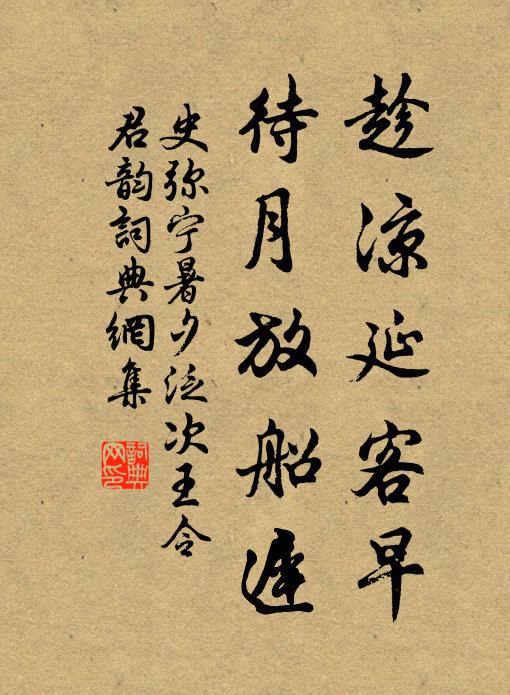 趁凉延客早
待月放船遲
史弥宁暑夕泛次王令
君韵詞典網集
詞典
网印